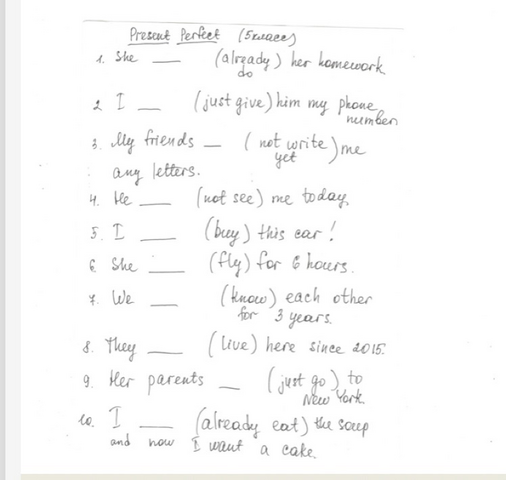 Present Perfect (5класс)
1. She ___ (already do) her homework
2 I ___ (just give) him my phone number
3. My friends __ (not write yet) me
any letters.
4. He ___ (not see) me today.
5. I ___ (buy) this car!
6. She ___ (fly) for 6 hours.
7. We ___ (know) each other
for 3 years.
8. They ___ (live) here since 2015.
9. Her parents __ (just go) to
New York.
10. I ___ (already eat) the soup
and now I want a cake.